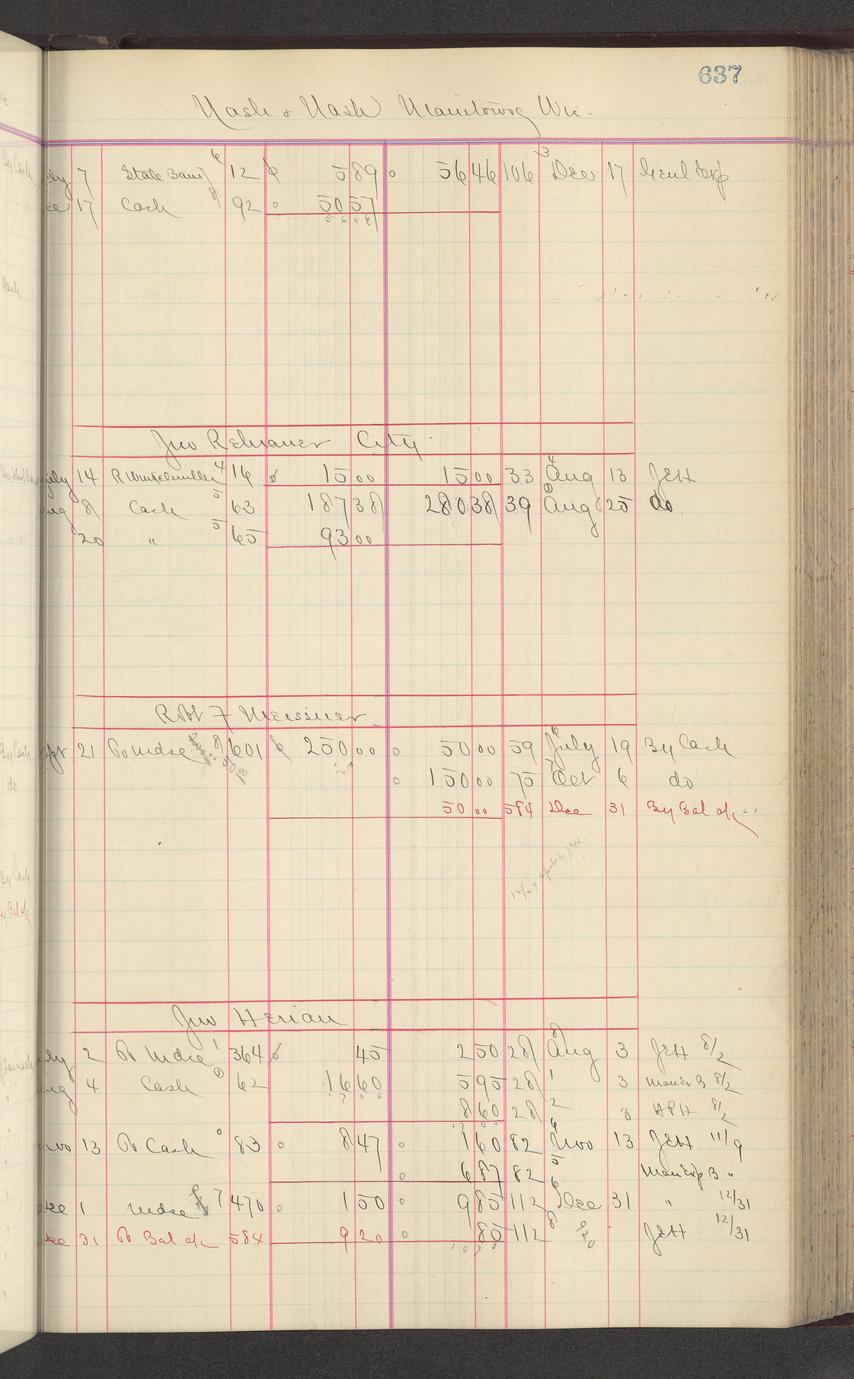 637
Nash & Nash Manitowoc Wis.
7 State Bank 12 5 89 56 46 106 Dec 17 Genl Exp
17 Cash 92 50 57
Jno Rehrauer City
July 14 16 15 00 15 00 33 Aug 13 JEH
8 Cash 63 187 38 280 38 39 Aug 25 do
20 " 65 93 00
Robt F Meissner
21 To Mdse 601 250 00 50 00 59 July 19 By Cash
150 00 75 Oct 6 do
50 00 584 Dec 31 By Bal d/c
Jno Herian
2 To Mdse 364 45 2 50 28 Aug 3 JEH 8/2
4 Cash 62 16 60 5 95 28 3 8/2
8 60 28 3 HPH 8/2
13 To Cash 83 8 47 1 60 82 Nov 13 JEH 11/9
6 87 82 Man Exp B "
1 Mdse 470 1 50 9 85 112 Dec 31 " 12/31
31 To Bal d/c 584 9 20 85 112 JEH 12/31